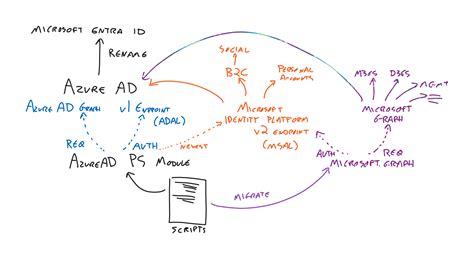 MICROSOFT ENTRA ID
RENAME
AZURE AD
AZURE AD GRAPH
V1 ENDPOINT
(ADAL)
REQ
AUTH
NEWEST
AZUREAD PS MODULE
SCRIPTS
MIGRATE
SOCIAL
B2C
PERSONAL
ACCOUNTS
MICROSOFT
IDENTITY PLATFORM
V2 ENDPOINT
(MSAL)
M365
D365
MGMT
MICROSOFT
GRAPH
AUTH
REQ
MICROSOFT.GRAPH